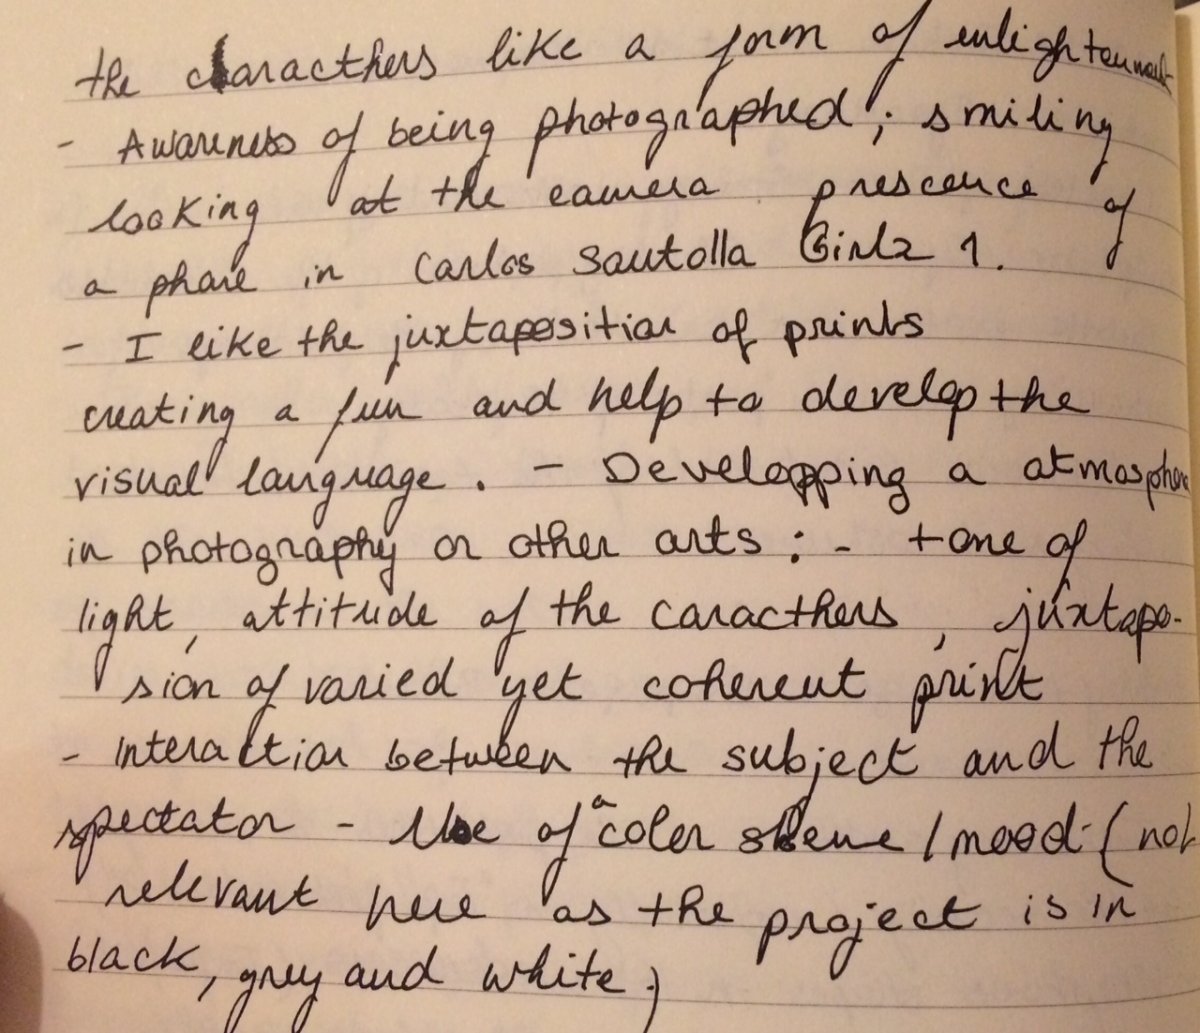 the caracthers like a form of enlightenment
- Awareness of being photographed; smiling
looking at the camera prescence of
a phare in Carlos Sautolla Girlz 1.
- I like the juxtaposition of prints
creating a fun and help to develop the
visual language. - Developping a atmosphere
in photography or other arts : - tone of
light, attitude of the caracthers, juxtapo-
sion of varied yet coherent print
- Interaction between the subject and the
spectator - Use of a color skeme / mood (not
relevant here as the project is in
black, grey and white.)